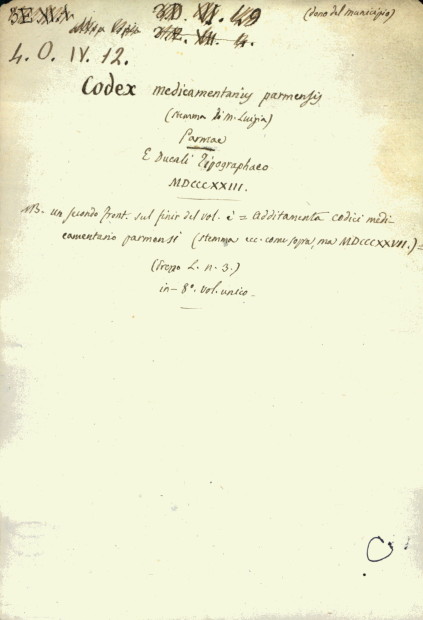 (dono del municipio)
4. O. IV. 12.
Codex medicamentarius parmensis
(stemma di M. Luigia)
Parmae
E Ducali Tipographaeo
MDCCCXXIII.
NB. un secondo front. sul finir del vol. è = Additamenta codici medi-
camentario parmensi (stemma ecc. come sopra, ma MDCCCXXVII.) =
(Prezzo L. n. 3.)
in-8°. vol. unico.